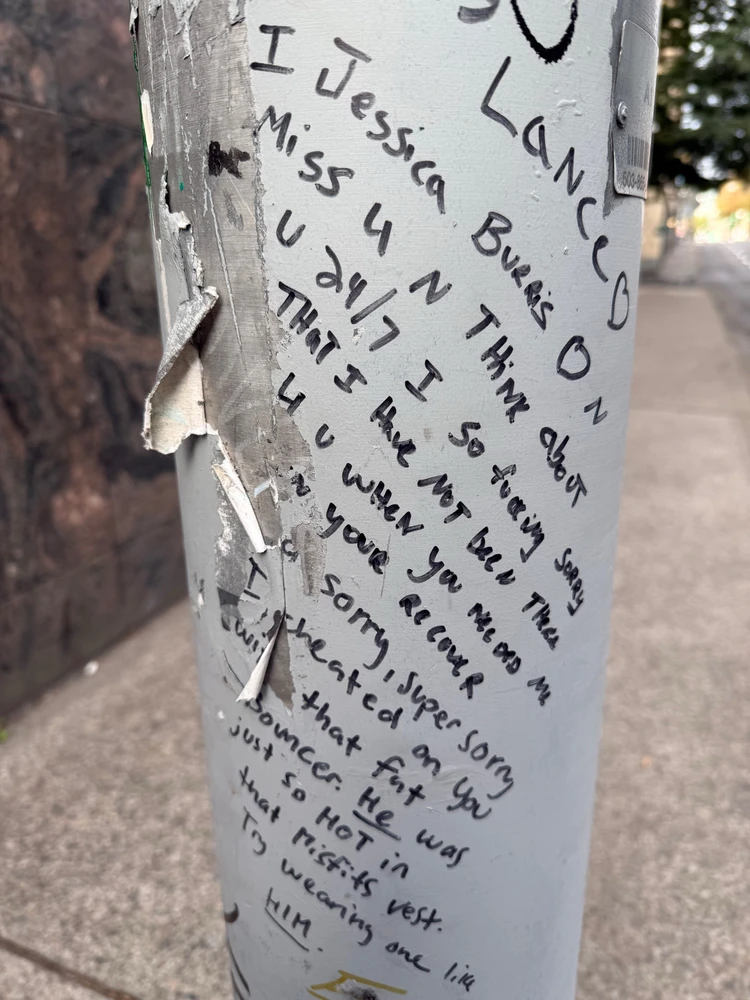 LANCE D
I Jessica BURRIS O N
Miss 4 N THINK about
U 24/7 I SO fucking SORRY
THAT I HAVE NOT been THERE
4 U WHEN YOU NEEDED ME
IN YOUR RECOVER
sorry, super sorry
I cheated on you
with that fat
Bouncer. He was
just so HOT in
that Misfits vest.
Try wearing one like
HIM.